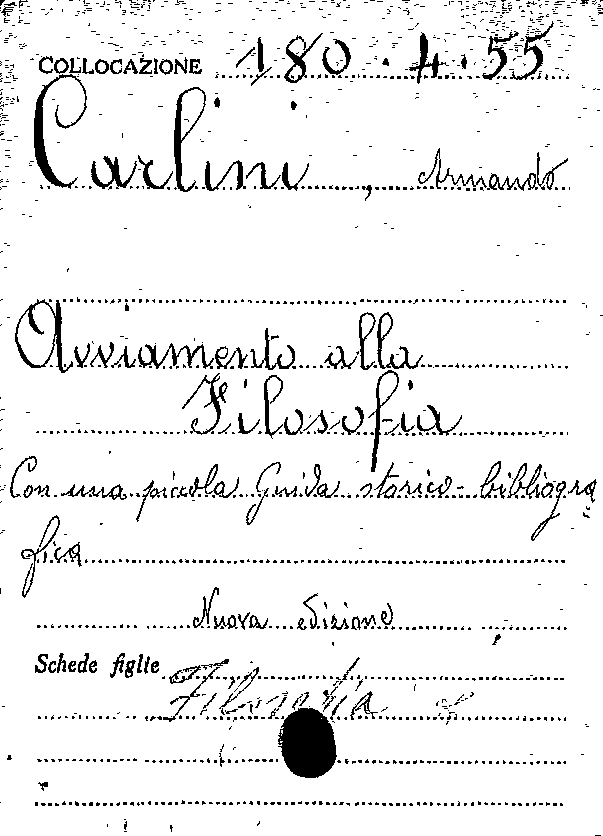 COLLOCAZIONE 180.4.55
Carlini, Armando
Avviamento alla
Filosofia
Con una piccola Guida storico-bibliogra
fica
Nuova edizione
Schede figlie Filosofia